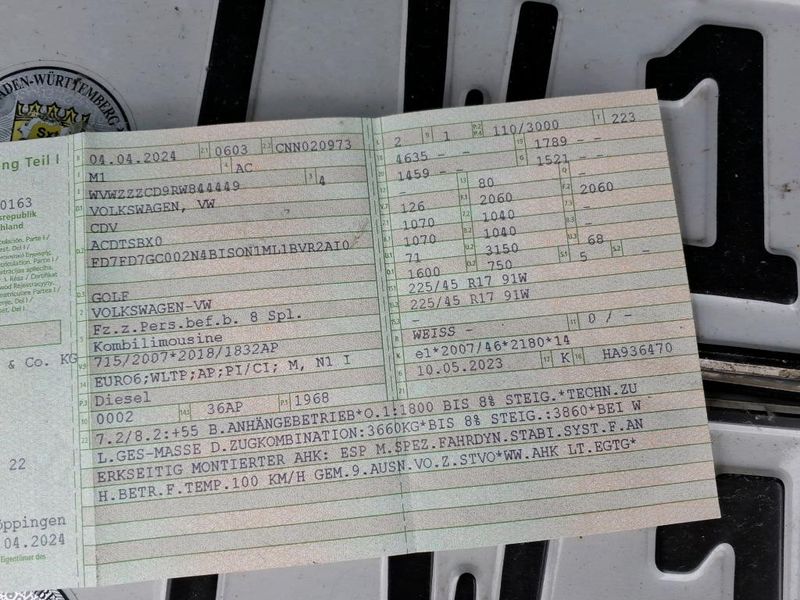 ADEN-WÜRTTEMBERG
ng Teil I
0163
srepublik
hland
& Co. KG
22
öppingen
.04.2024
04.04.2024 2.1 0603 2.2 CNN020973
M1 4 AC
WVWZZZCD9RW844449 3 4
VOLKSWAGEN, VW
CDV
ACDTSBX0
FD7FD7GC002N4BISON1ML1BVR2AI0
GOLF
VOLKSWAGEN-VW
Fz.z.Pers.bef.b. 8 Spl.
Kombilimousine
715/2007*2018/1832AP
EURO6;WLTP;AP;PI/CI; M, N1 I
Diesel
0002 36AP P.1 1968
2 9 1 P.2 P.4 110/3000 T 223
4635 - - 1789 - -
1459 - - 1521 - -
- 80 -
126 2060 2060
1070 1040 -
1070 1040 -
71 3150 68
1600 750 S.1 5 S.2 -
225/45 R17 91W
225/45 R17 91W
-
WEISS - 11 0 / -
e1*2007/46*2180*14
10.05.2023 17 K 16 HA936470
22 7.2/8.2:+55 B.ANHÄNGEBETRIEB*O.1:1800 BIS 8% STEIG.*TECHN.ZU
L.GES-MASSE D.ZUGKOMBINATION:3660KG*BIS 8% STEIG.:3860*BEI W
ERKSEITIG MONTIERTER AHK: ESP M.SPEZ.FAHRDYN.STABI.SYST.F.AN
H.BETR.F.TEMP.100 KM/H GEM.9.AUSN.VO.Z.STVO*WW.AHK LT.EGTG*
1
1